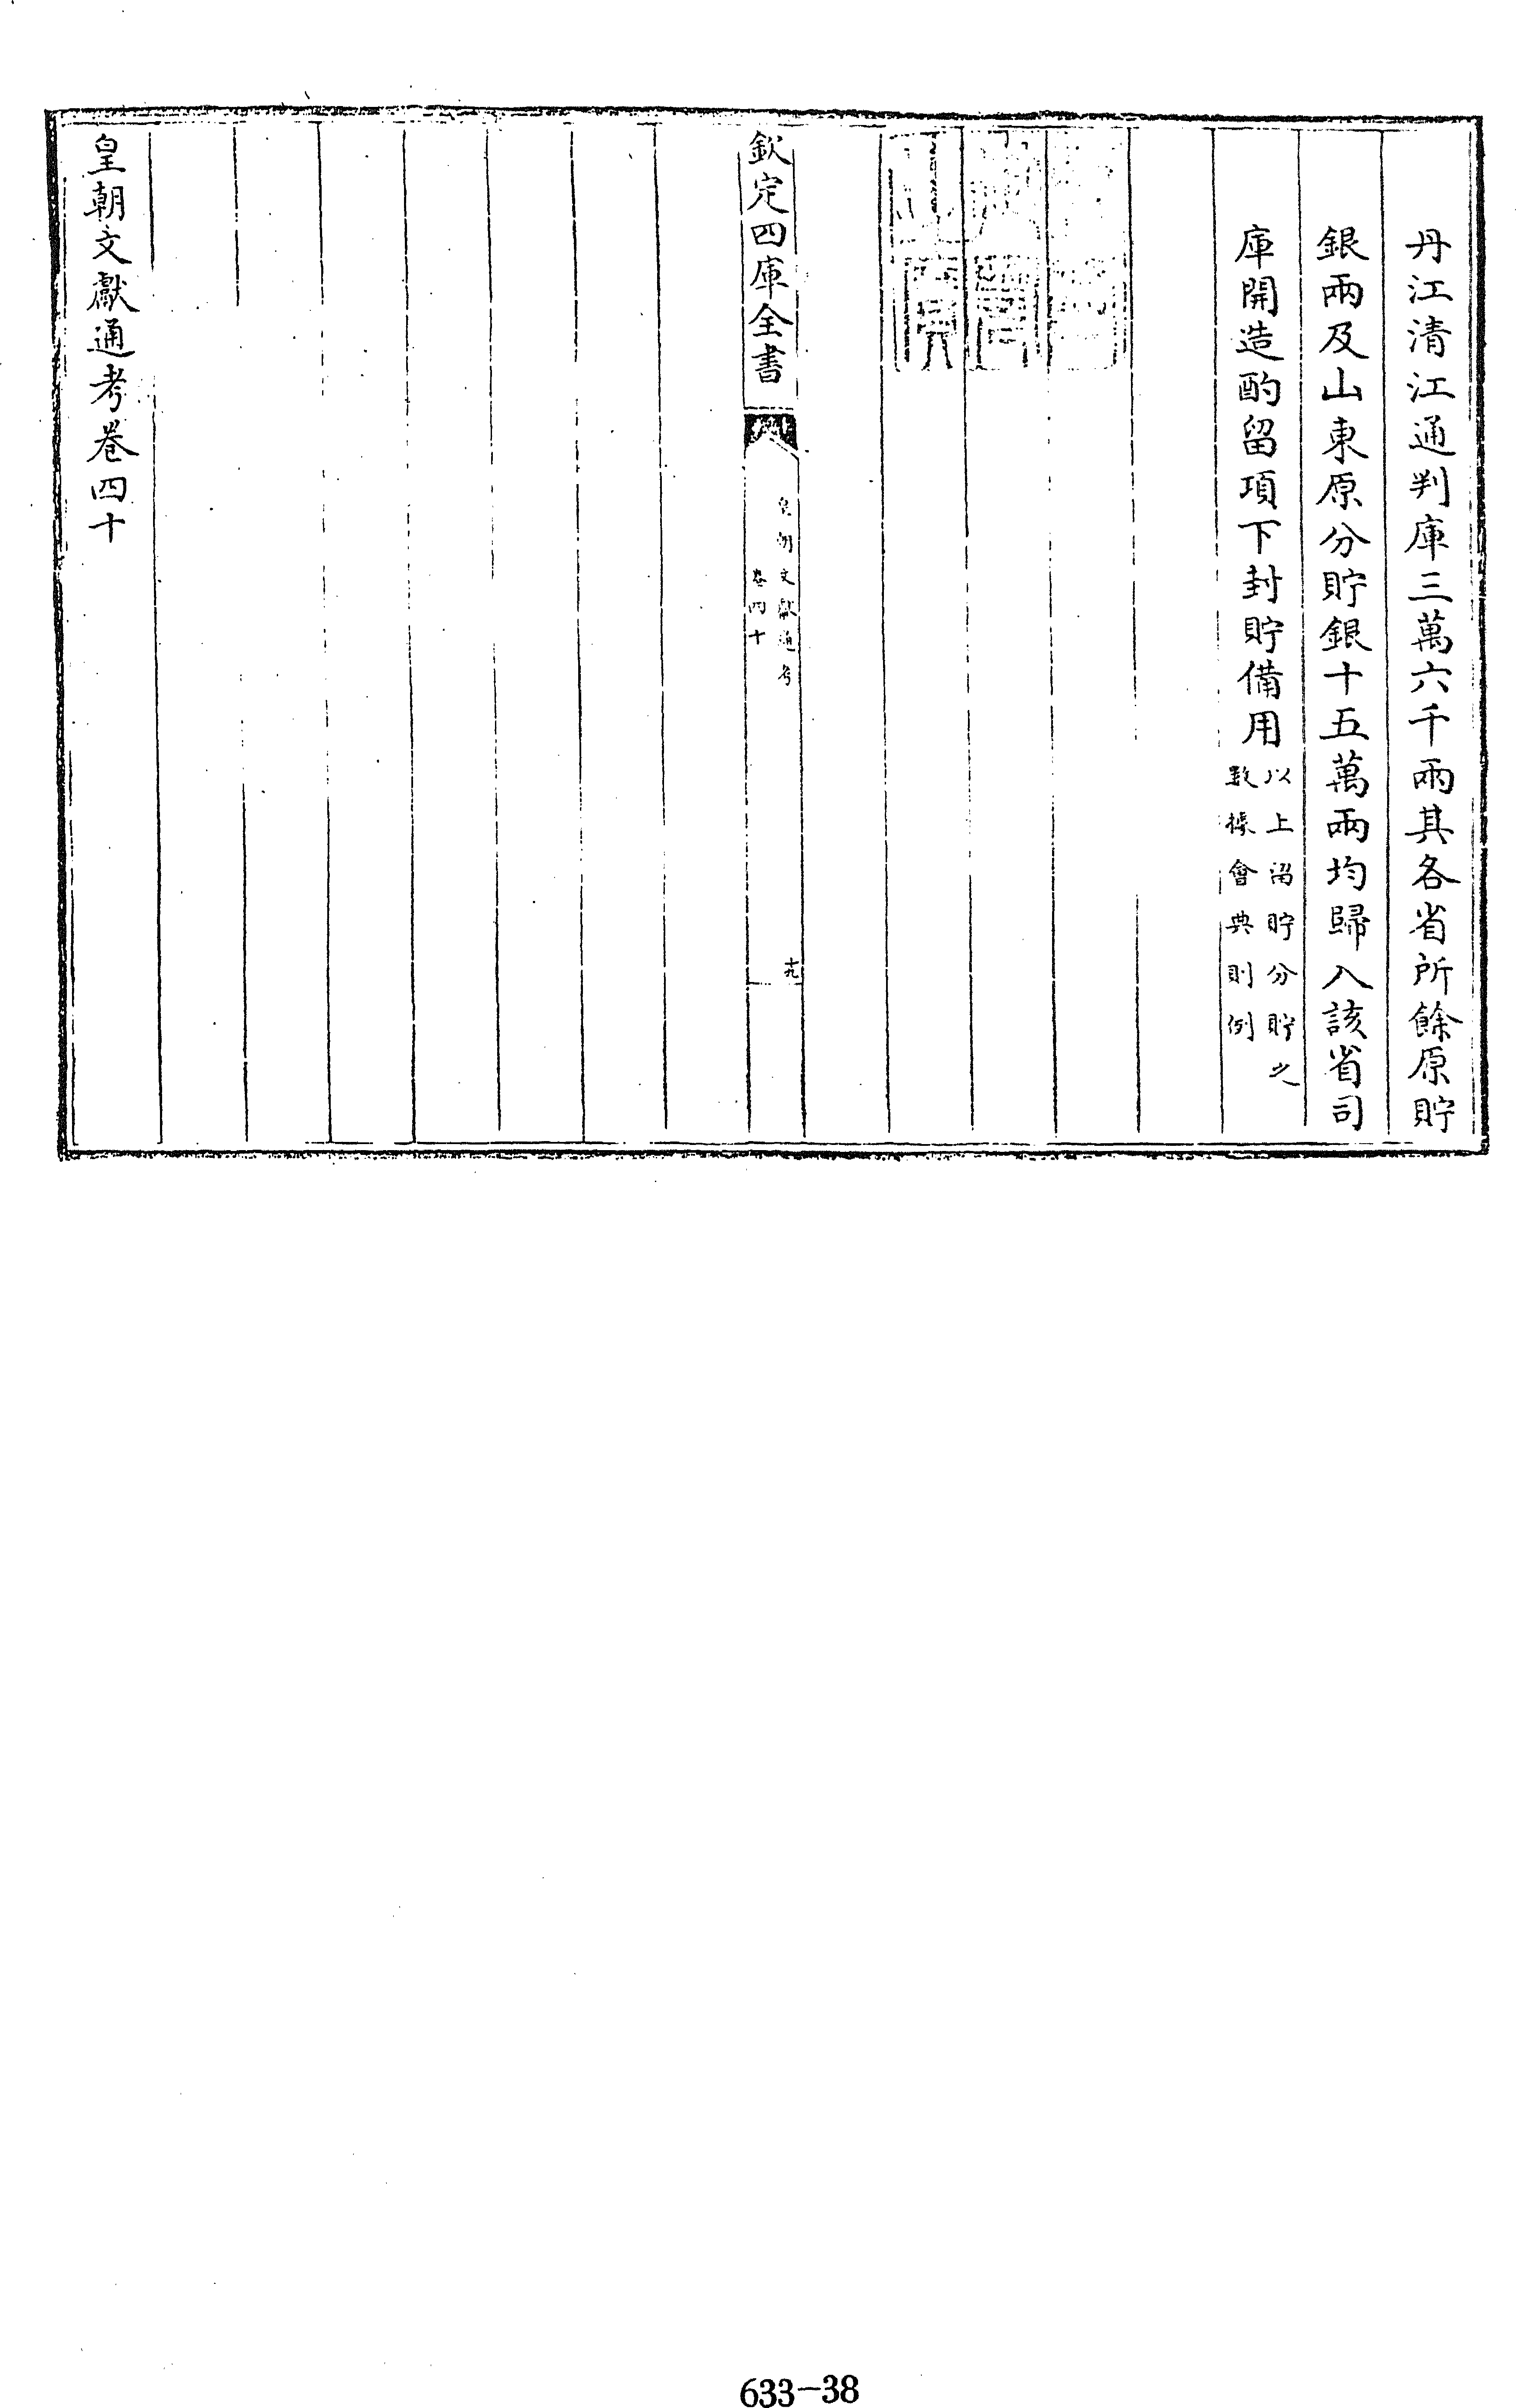 丹江清江通判庫三萬六千兩其各省所餘原貯
銀兩及山東原分貯銀十五萬兩均歸入該省司
庫開造酌留項下封貯備用
以上留貯分貯之
數據會典則例
欽定四庫全書
皇朝文獻通考
卷四十
十九
皇朝文獻通考卷四十
633-38